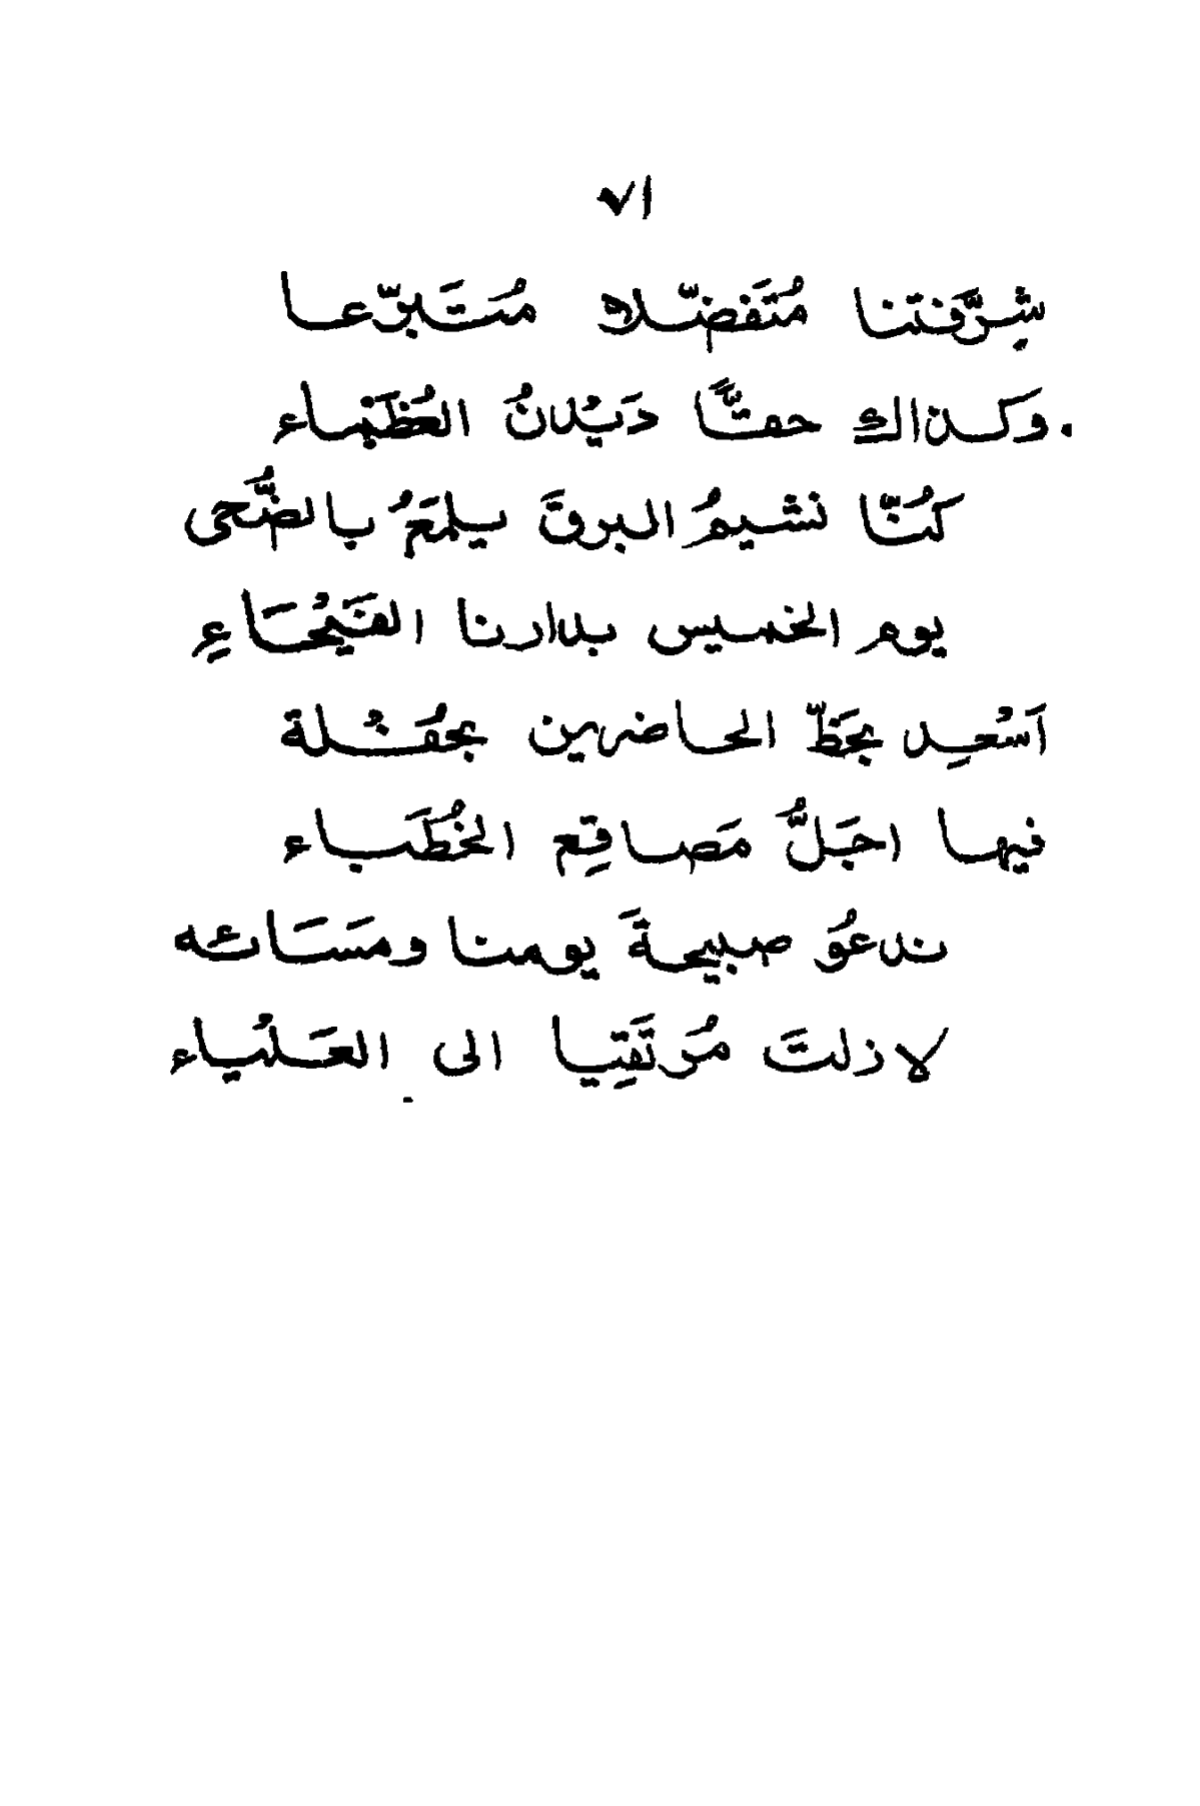 ٧١
شِرَّفتنا مُتَفضّلا مُتَبرّعا
وكذاك حقًّا دَيْدنُ العُظَمَاء
كنُّا نشيمُ البرقَ يلمَعُ بالضُّحى
يوم الخميس بدارنا الفَيْحَاءِ
اَسْعِد بحَظّ الحاضرين بحُفَلْة
فيها اجَلُّ مَصاقِع الخُطَباء
ندعوُ صبيحةَ يومنا ومسَاَئه
لا زلتَ مُرتَقِيا الى العَلْياء